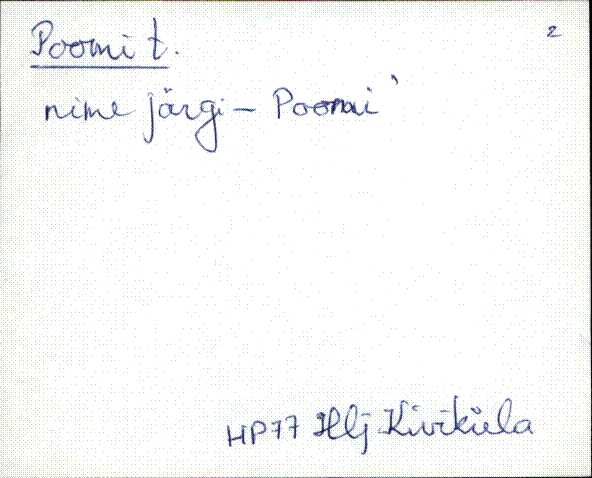 Poomi t. 2
nime järgi – Poomi`
HP77 Hlj Kiviküla